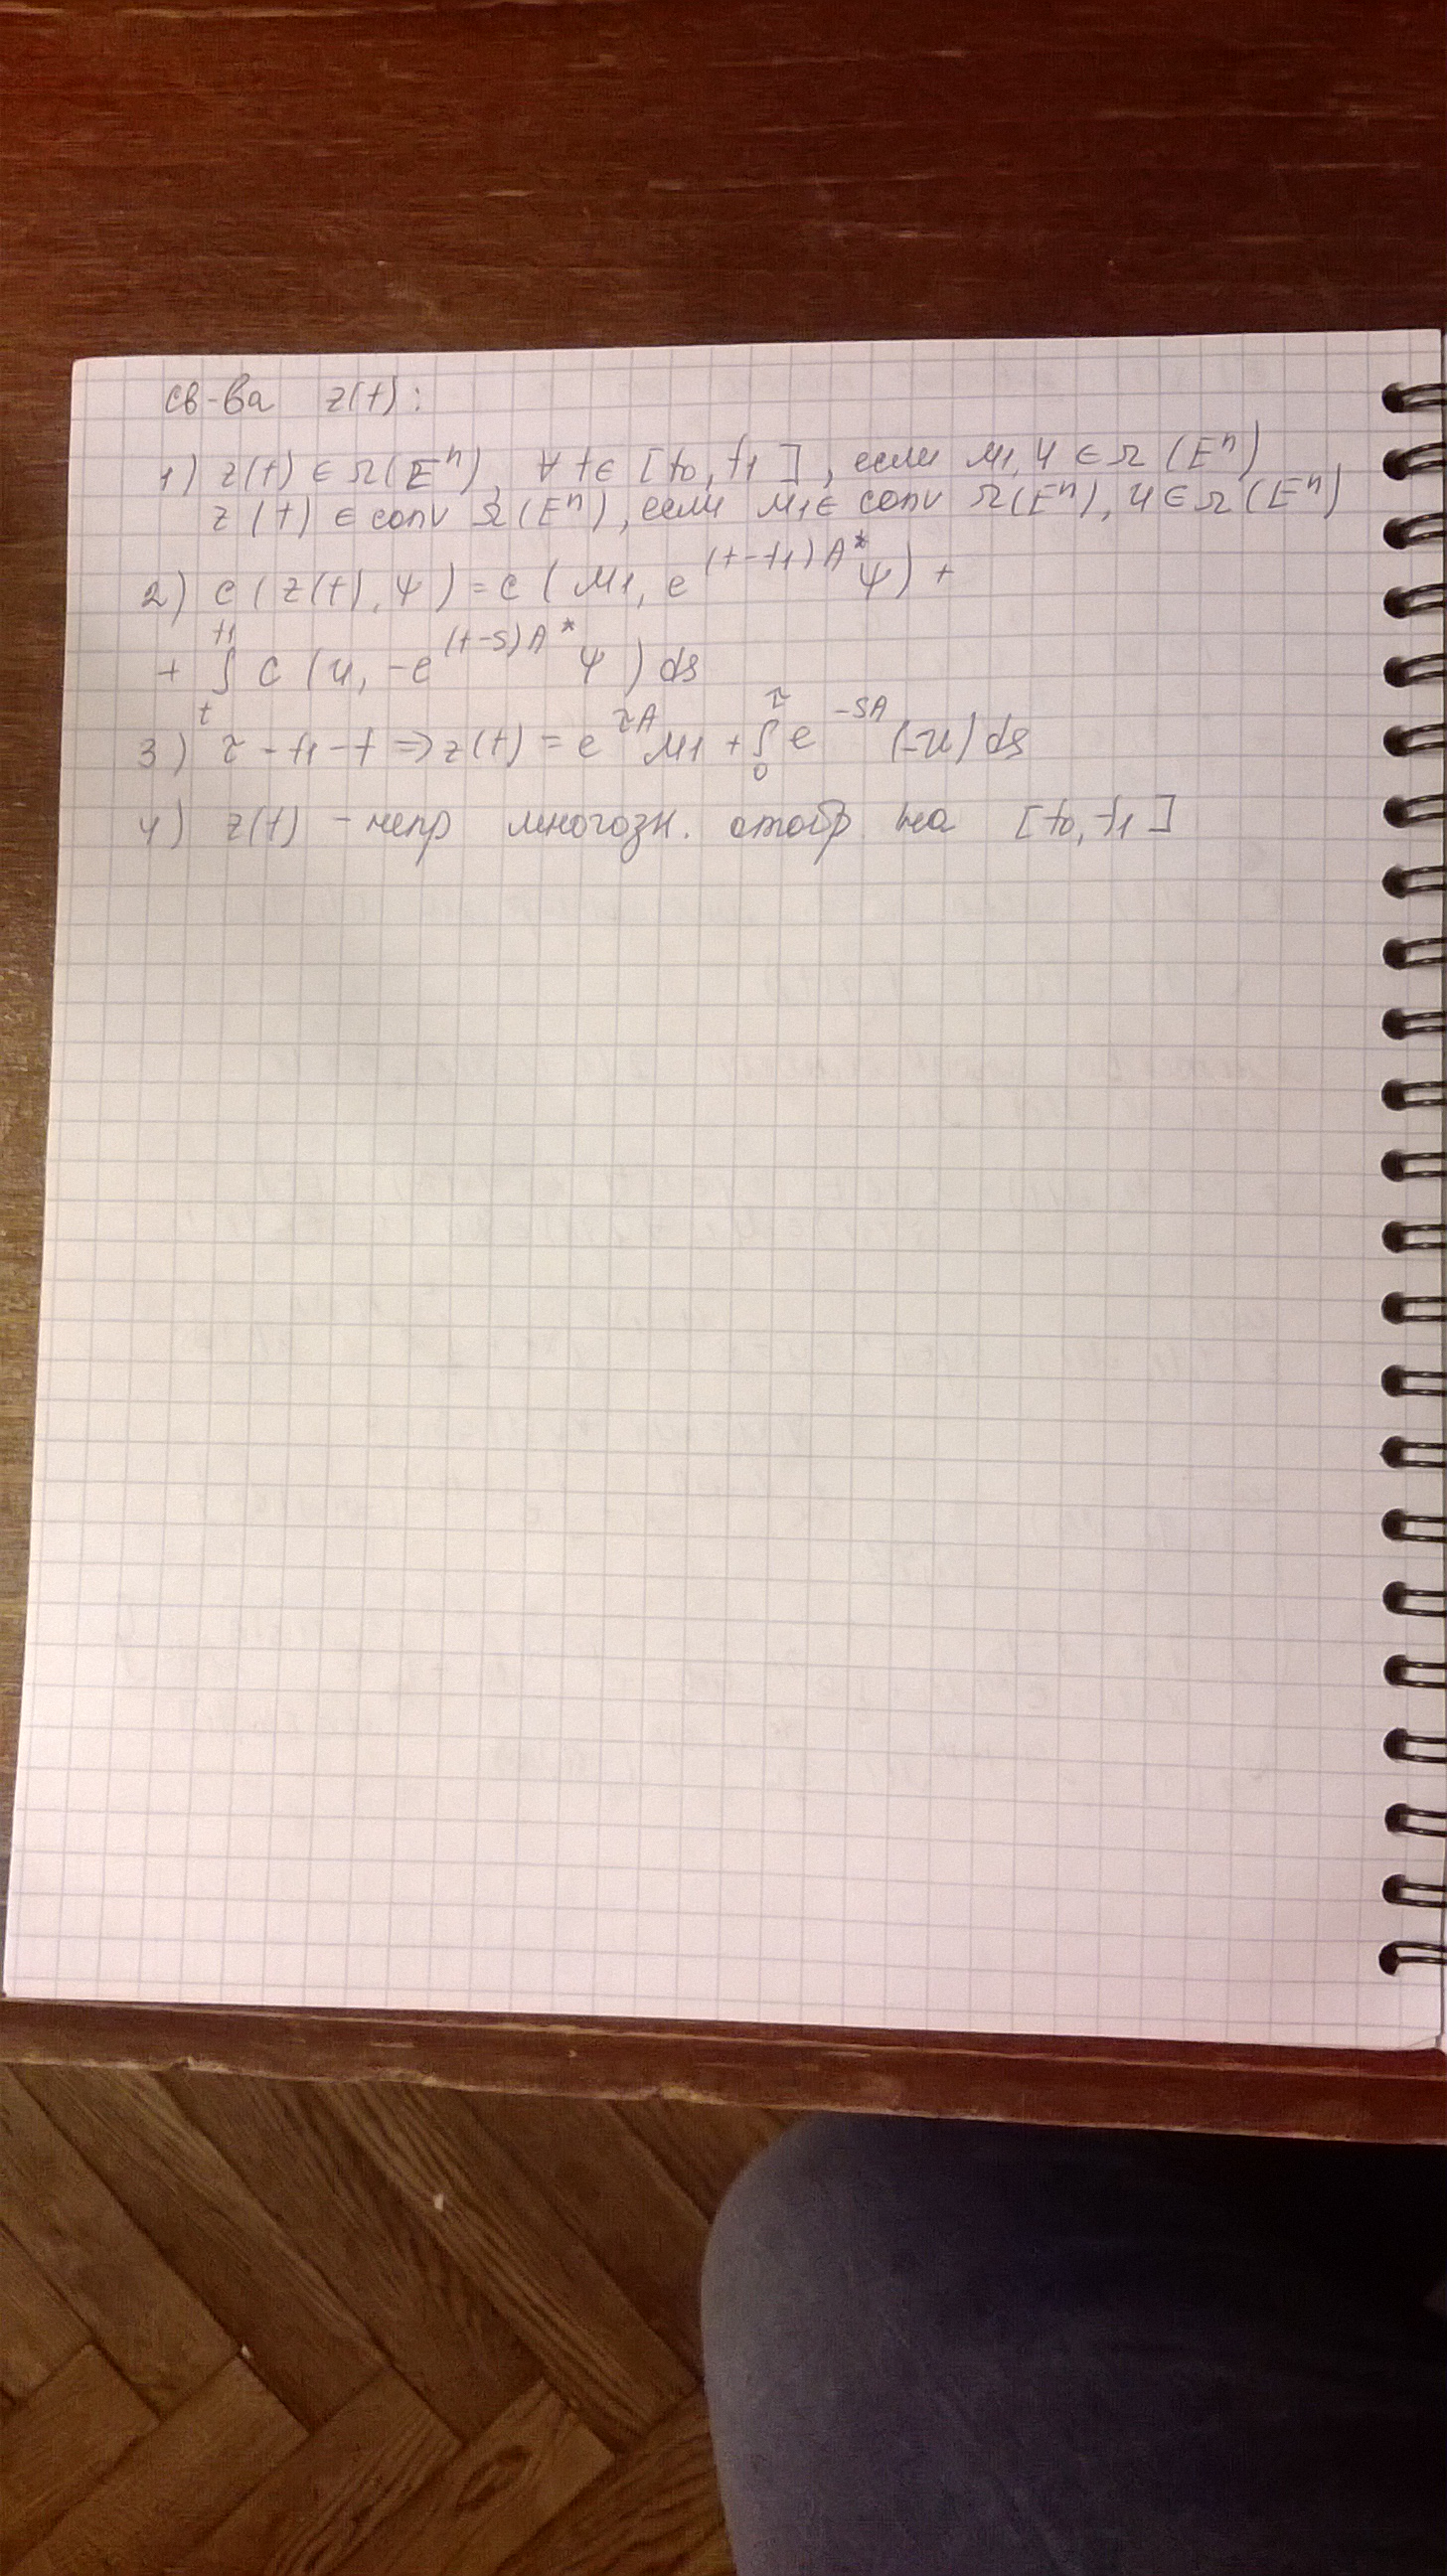 св-ва z(t):
1) z(t) ∈ Ω(Eⁿ), ∀ t ∈ [t₀, t₁], если M₁, U ∈ Ω(Eⁿ)
z(t) ∈ conv Ω(Eⁿ), если M₁ ∈ conv Ω(Eⁿ), U ∈ Ω(Eⁿ)
2) c(z(t), ψ) = c(M₁, e^{(t-t₁)A*} ψ) +
+ ∫_t^{t₁} c(U, -e^{(t-s)A*} ψ) ds
3) τ - t₁ - t => z(t) = e^{τA} M₁ + ∫_0^τ e^{-sA} (-U) ds
4) z(t) - непр многозн. отобр на [t₀, t₁]